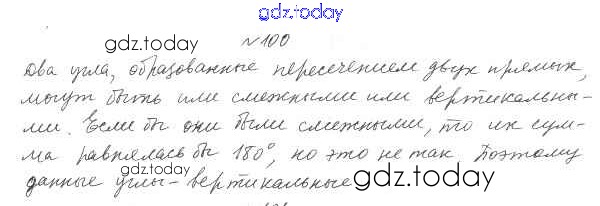 gdz.today
gdz.today №100 gdz.today
два угла, образованные пересечением двух прямых,
могут быть или смежными или вертикальны-
ми. Если бы они были смежными, то их сум-
ма равнялась бы 180°, но это не так Поэтому
данные углы - вертикальные gdz.today